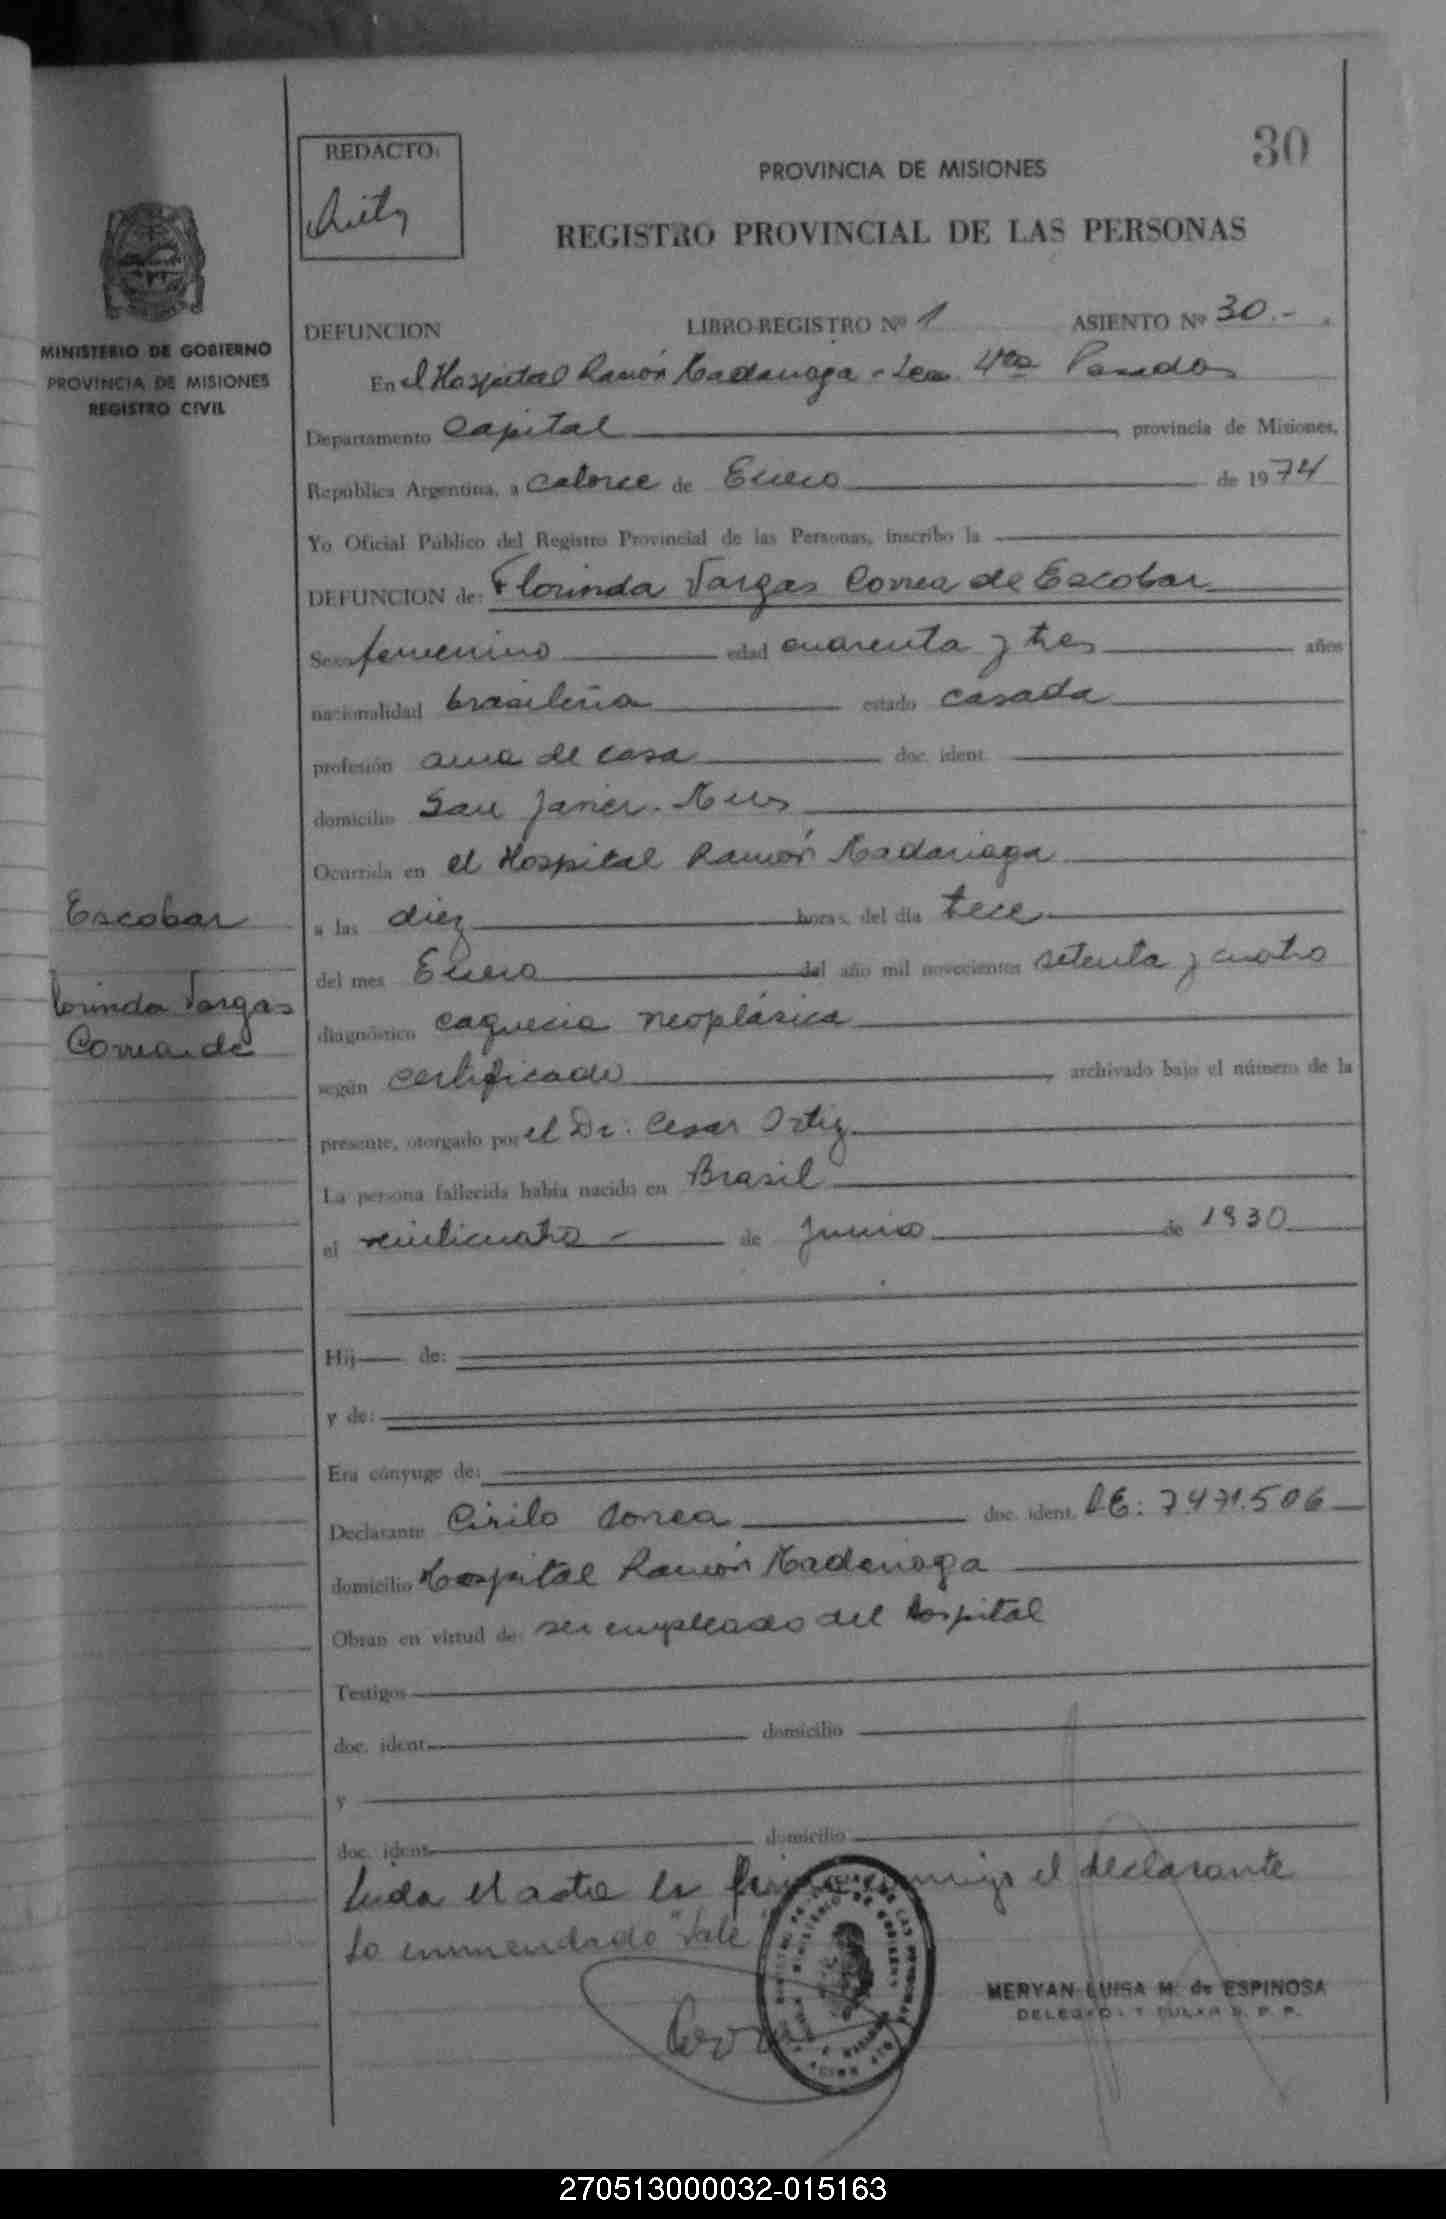 REDACTO:
30
PROVINCIA DE MISIONES
REGISTRO PROVINCIAL DE LAS PERSONAS
MINISTERIO DE GOBIERNO
PROVINCIA DE MISIONES
REGISTRO CIVIL
DEFUNCION LIBRO-REGISTRO Nº 1 ASIENTO Nº 30.-
En el Hospital Ramón Madariaga - 4ta Posadas
Departamento Capital, provincia de Misiones,
República Argentina, a catorce de Enero de 1974
Yo Oficial Público del Registro Provincial de las Personas, inscribo la
DEFUNCION de: Florinda Vargas Correa de Escobar
Sexo femenino edad cuarenta y tres años
nacionalidad brasileña estado casada
profesión ama de casa doc. ident.
domicilio San Javier - Mnes
Ocurrida en el Hospital Ramón Madariaga
a las diez horas, del día trece
del mes Enero del año mil novecientos setenta y cuatro
diagnóstico caquexia neoplásica
según certificado, archivado bajo el número de la
presente, otorgado por el Dr. Cesar Ortiz
La persona fallecida había nacido en Brasil
el veinticuatro - de Junio de 1930
Hij de:
y de:
Era cónyuge de:
Declarante Cirilo Correa doc. ident. L.E: 7.471.506
domicilio Hospital Ramón Madariaga
Obran en virtud de ser empleado del hospital
Testigos
doc. ident. domicilio
y
doc. ident. domicilio
Leída el acta la firma conmigo el declarante
Lo enmendado "Vale"
MERYAN LUISA M. de ESPINOSA
DELEGADA TITULAR R. P. P.
Escobar
Florinda Vargas
Correa de
270513000032-015163